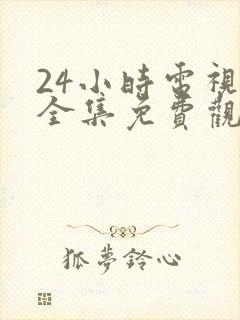 24小時電視
全集免費觀
狐夢鈴心